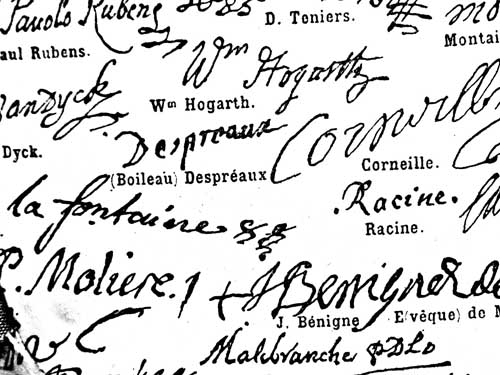 Paolo Rubens
D. Teniers.
aul Rubens.
Montai
Wm Hogarth
Wm Hogarth.
anDyck
Dyck.
Despreaux
(Boileau) Despréaux
Corneille
Corneille.
la fontaine
.Racine.
Racine.
P. Moliere.
+ J Benigne
J. Bénigne E(vêque) de M
Malebranche